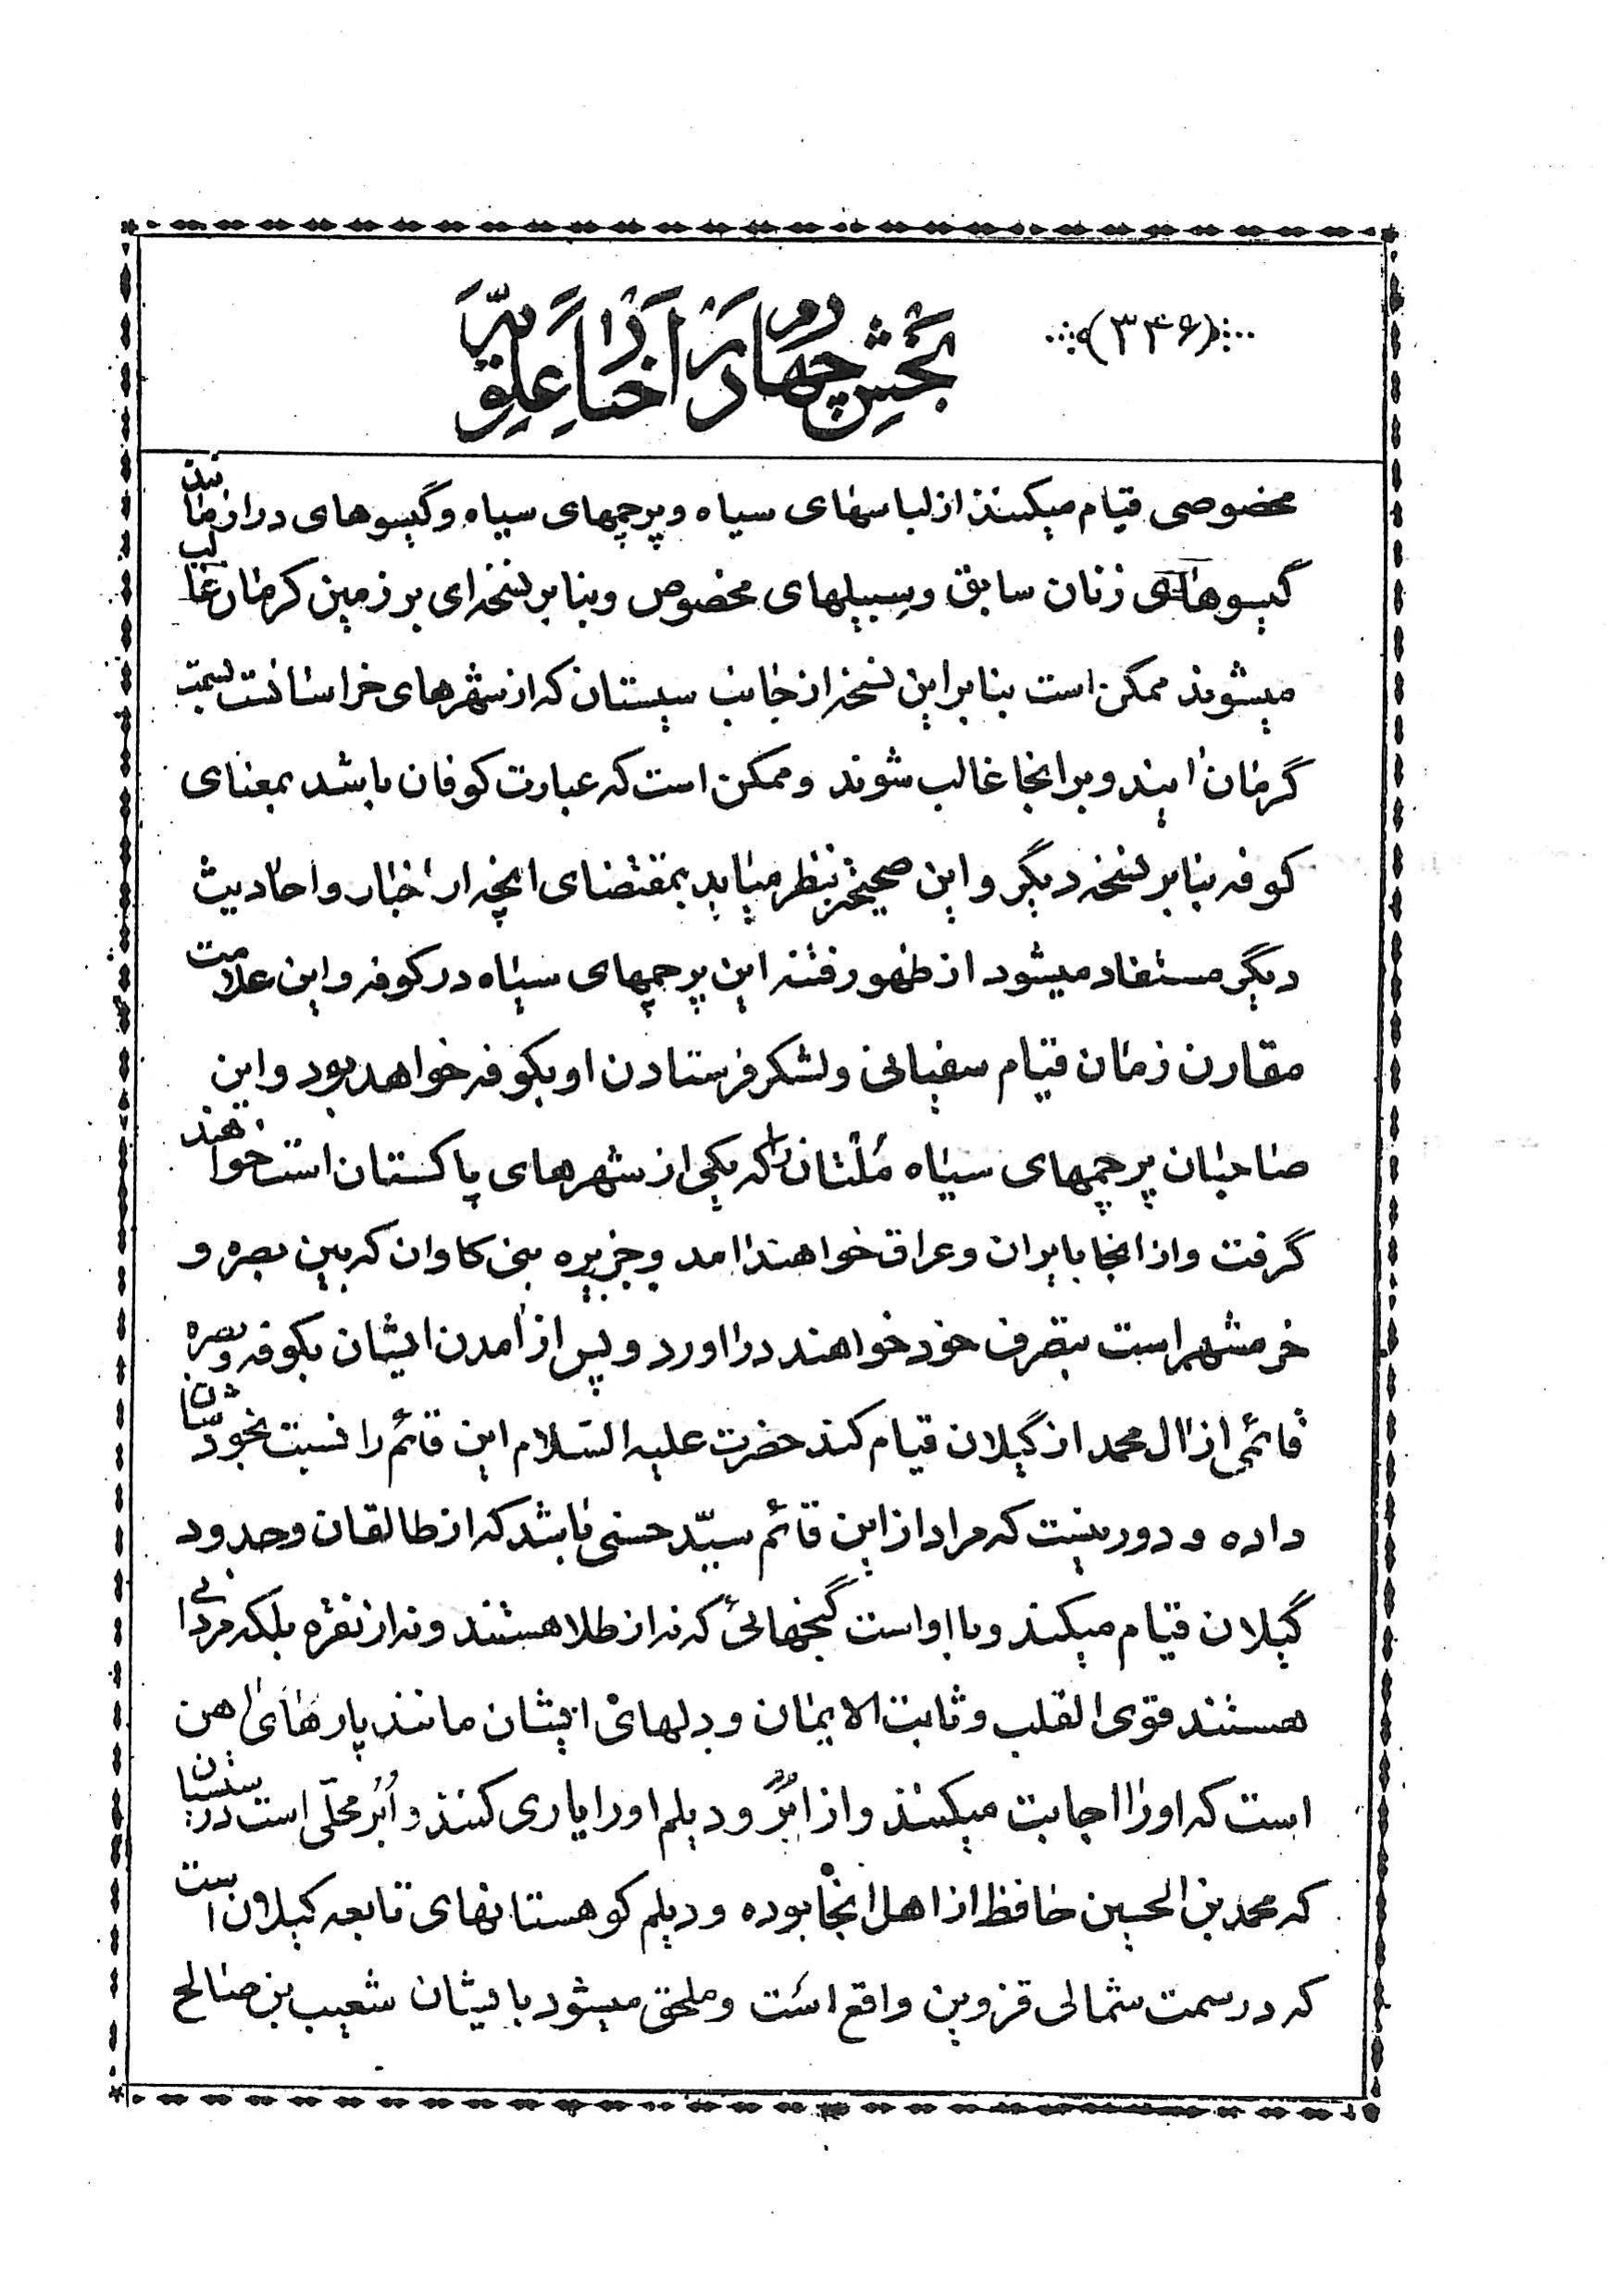 (۳۴۶)
بخش چهارم در اخبار علویه
مخصوصی قیام میکنند از لباسهای سیاه و پرچمهای سیاه و گیسوهای دراز مانند
گیسوهای زنان سابق و سبیلهای مخصوص و بنابر نسخه‌ای بر زمین کرمان غالب
میشوند ممکن است بنابر این نسخه از جانب سیستان که از شهرهای خراسانست بسمت
کرمان ایند و بر انجا غالب شوند و ممکن است که عبارت کوفان باشد بمعنای
کوفه بنابر نسخه دیگر و این صحیحتر بنظر میاید بمقتضای انچه از اخبار و احادیث
دیگر مستفاد میشود از ظهور فتنه این پرچمهای سیاه در کوفه و این علامت
مقارن زمان قیام سفیانی و لشکر فرستادن او بکوفه خواهد بود و این
صاحبان پرچمهای سیاه مُلتان را که یکی از شهرهای پاکستان است خواهند
گرفت و از انجا بایران و عراق خواهند امد و جزیره بنی کاوان که بین بصره و
خرمشهر است بتصرف خود خواهند در اورد و پس از امدن ایشان بکوفه و بصره
قائمی از ال محمد از گیلان قیام کند حضرت علیه السّلام این قائم را نسبت بخودشان
داده و دور نیست که مراد از این قائم سیّد حسنی باشد که از طالقان و حدود
گیلان قیام میکند و با او است گنجهائی که نه از طلا هستند و نه از نقره بلکه مردانی
هستند قوی القلب و ثابت الایمان و دلهای ایشان مانند پارهای اهن
است که او را اجابت میکنند و از ابُر و دیلم او را یاری کنند و اُبُر محلّی است در سیستان
که محمد بن الحسین حافظ از اهل انجا بوده و دیلم کوهستانهای تابعه گیلان است
که در سمت شمالی قزوین واقع است و ملحق میشود بایشان شعیب بن صالح